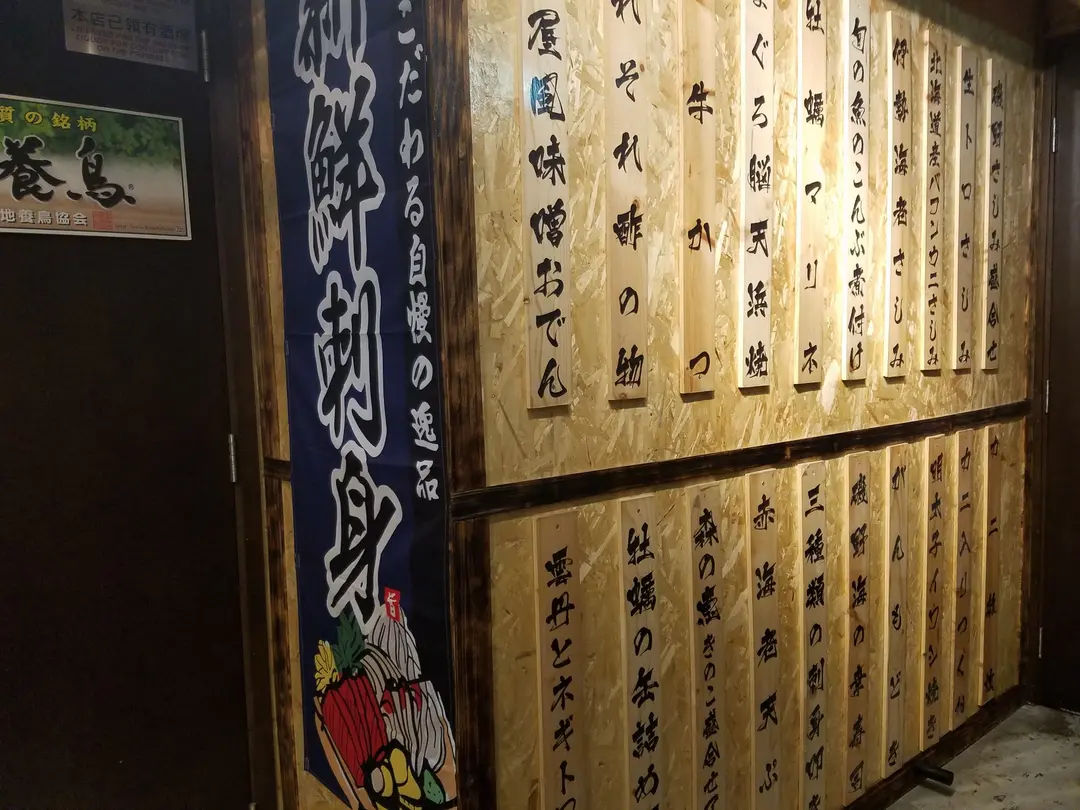 本店已領有酒牌
質の銘柄
養鳥
地養鳥協会
新鮮刺身
こだわる自慢の逸品
旨
磯野さしみ盛合せ
生トロさしみ
北海道産バフンウニさしみ
伊勢海老さしみ
旬の魚のこんぶ煮付け
牡蠣マリネ
まぐろ脳天浜焼
牛かつ
れぞれ酢の物
屋風味噌おでん
カニ入りつく
明太子イワシ焼き
がんもどき
磯野海の幸春
三種類の刺身
赤海老天ぷ
森の恵きのこ盛合せ
牡蠣の缶詰め
雲丹とネギト